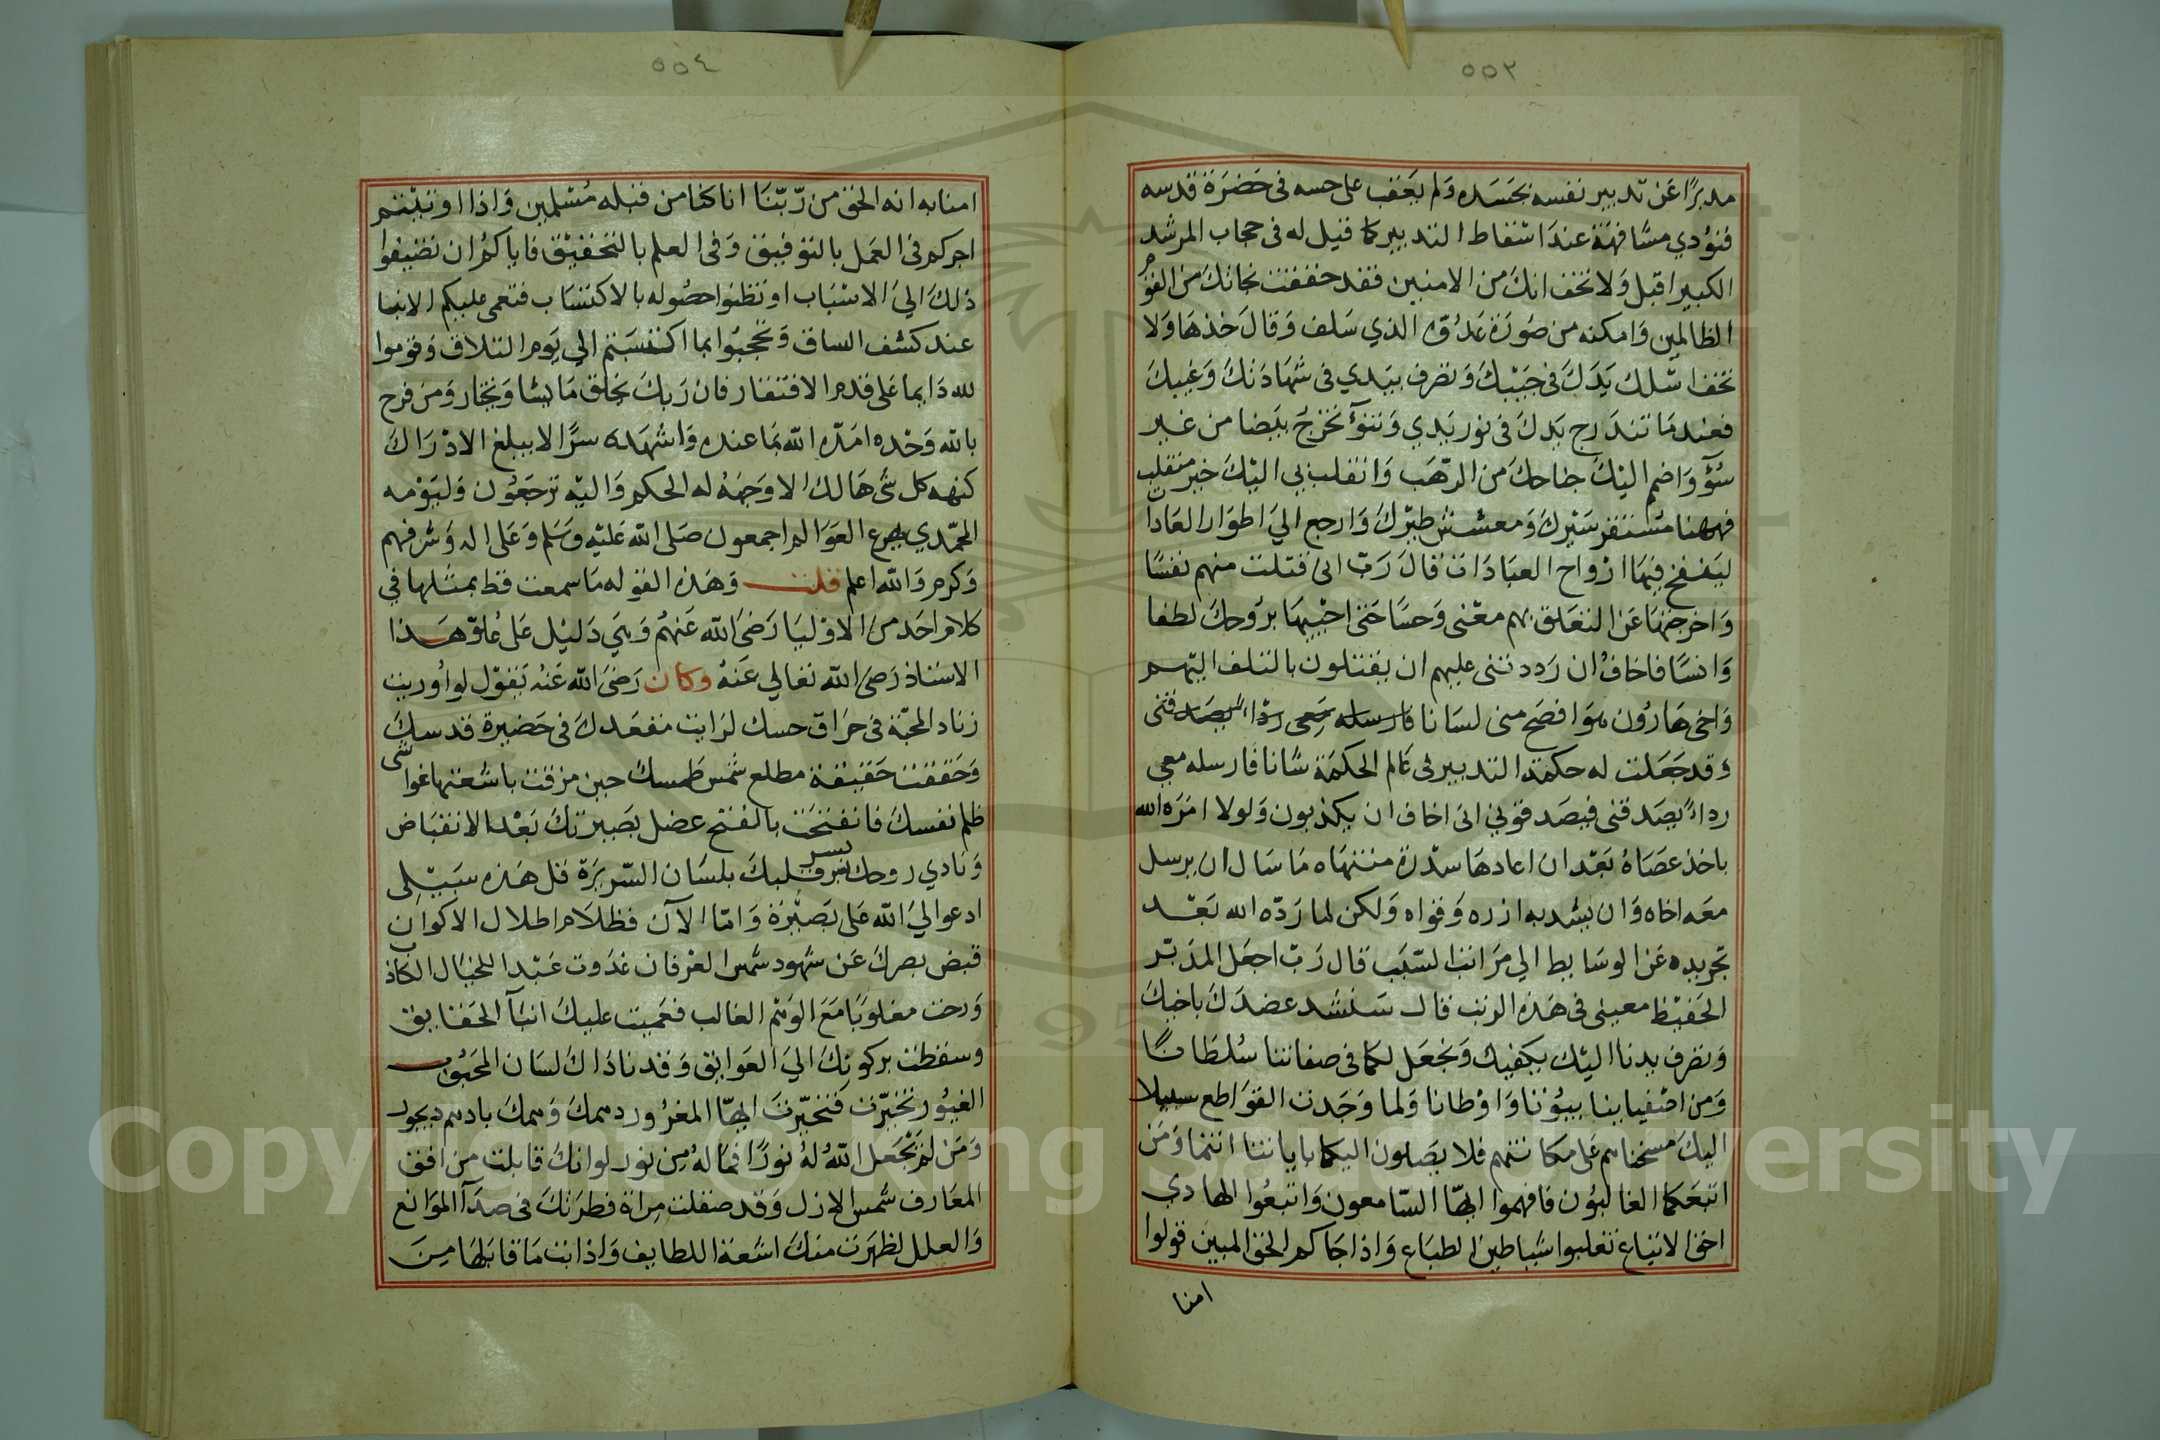 ٥٥٣
مدبرًا عَن تدبير نفسه بجَسَده وَلم يعَقب على حسه في حَضرَة قدسه
فنودي مشافهَة عندَ اسقاط التدبير كما قيل له في حجاب المرشد
الكبير اقبل وَلا تخف انكَ من الامنين فقد حققت نجاتكَ من القوم
الظالمين وَامكنه من صَورَة عَدُوّه الذي سَلف وَقالَ خذهَا وَلا
تخف اسْلك يَدَكَ في جَيْبكَ وَتصرف بيَدي في شهَادتكَ وَغيبكَ
فعند مَا تندَرج يَدكَ في نور يَدي وَتنوأ تخرج بَيضا من غير
سُوٓء وَاضم اليْكَ جناحكَ من الرّهَب وَانقلب بي اليْكَ خير منقلب
فههنا مسْتقر سَيْركَ وَمعشش طيْركَ وَارجع اليَ اطوَار العَادات
ليَنفخ فيهَا ارْواح العبَادَات قالَ رَبّ اني قتلت منهم نفسًا
وَاخرجتهَا عَن التعَلق بهم معْنى وَحسًا حَتى احْييهَا برُوحكَ لطفا
وَانسًا فاخافُ ان رَددتني عليهم ان يقتلون بالتلف اليْهم
وَاخي هَارُون هوَ افصَح مني لسَانا فارسله معي ردًا يصَدقني
وَقد جَعَلت له حكمة التدبير في عَالم الحكمَة شانا فارسله معي
ردًا يصَدقني فيصَدقوني اني اخاف ان يكذبون وَلولا امَرَه الله
باخذ عصَاهُ بَعْد ان اعادهَا سدْرة منتهَاه مَا سَال ان يرسل
معَه اخاه وَان يشد به ازره وَقواه وَلكن لما رَدّه الله بَعْد
تجريده عَن الوسَايط الي مرَاتب السّبَب قال رَبّ اجعَل المدَبّر
الحَفيْظ معيني في هَذه الرتب قال سَنشد عضدَكَ باخيكَ
وَتصرف يدنا اليْك بكفيك وَنجعَل لكما في صفاتنا سُلطانًا
وَمن اصْفيا بنا بيُوتا وَاوْطانا وَلما وَجَدت القوَاطع سبيلا
اليكَ مسَخناهم عَلى مكانتهم فلا يصَلون اليكما باياتنا انتما وَمَن
اتبَعَكما الغالبُون فافهموا ايهَا السّامعون وَاتبعُوا الهادي
احق الاتباع تغلبوا شيَاطين الطبَاع وَاذا جَاكم الحق المبين قولوا
امنا
٥٥٤
امنا به انه الحق من رّبّنَا انا كنا من قبله مُسْلمين وَاذا اوتيْتم
اجركم في العَمل بالتوفيق وَفي العلم بالتحقيْق فاياكمُ ان تضيفوا
ذلكَ اليَ الاسْبَاب اوتظنوا حصُوله بالاكتسَاب فتعمى عليكم الانبا
عند كشف الساق وَتحجبُوا بما اكتسَبتم الي يَوم التلاق وَقوموا
لله دَايما عَلى قدم الافتقار فان رَبكَ يخلق مَا يشا وَيختار وَمن فرح
بالله وَحْده امَدّه اللّه بمَا عنده وَاشهَده سرًّا لا يبلغ الادْرَاكَ
كنهه كل شَي هَالك الا وَجهَهُ له الحكم وَاليْه ترجَعُون وَليَوْمه
المحَمّدي يهرع العَوَالم اجمعون صَلى اللّه عَليْه وَسَلم وَعَلى اله وَشرفهم
وَكرم وَاللّه اعلم قلت وَهَذه القوله مَا سمعت قط بمثلها في
كلام احَد من الاوْليَا رَضيَ اللّه عَنهُم وَهيَ دَليْل عَلى عُلوّ هَذا
الاسْتاذ رَضيَ اللّه تعَالي عَنهُ وكان رَضيَ اللّه عَنهُ يَقوْل لو اُوريت
زناد المحَبّة في حرَاق حسك لرَايت مقعَدكَ في حَضيرة قدسكَ
وَحَققت حَقيقة مطلع شمس طمسكَ حين مزقت باشعتها غواشي
ظلم نفسكَ فانفتحَت بالفتح عضل بَصيرتكَ بَعْد الانقبَاض
وَنادي روحكَ بسر قلبكَ بلسَان السّريرَة قل هَذه سَبيْلي
ادعوا اليَ اللّه عَلى بَصيْرَة وَامّا الآن فظلامَ اطلال الاكوان
قبض بصركَ عَن شهود شمس العرْفان غدَوت عَبْدا للخيَال الكاذب
وَرحت مغلوبًا مَعَ الوَهْم الغالب فعَميت عليكَ انبَآ الحَقايق
وسقطت بركونكَ اليَ العَوَايق وَقد نادَاكَ لسَان المحَبُوب
الغيُور تخيّرْت فتحيّرتَ ايهَا المغرُور دهمكَ وَهمكَ بادهم ديجور
وَمَن لمْ يَجْعَل اللّهُ لهُ نورًا فمَا لهُ مِن نور لوانكَ قابلت من افق
المعَارف شمس الازل وَقد صَقلت مرَاة فطرَتكَ في صَدَآ الموَانع
وَالعلل لظهرَت منكَ اشعَة اللطايف وَاذابت مَا قابَلهَا مِنَ
Copyright © King Saud University